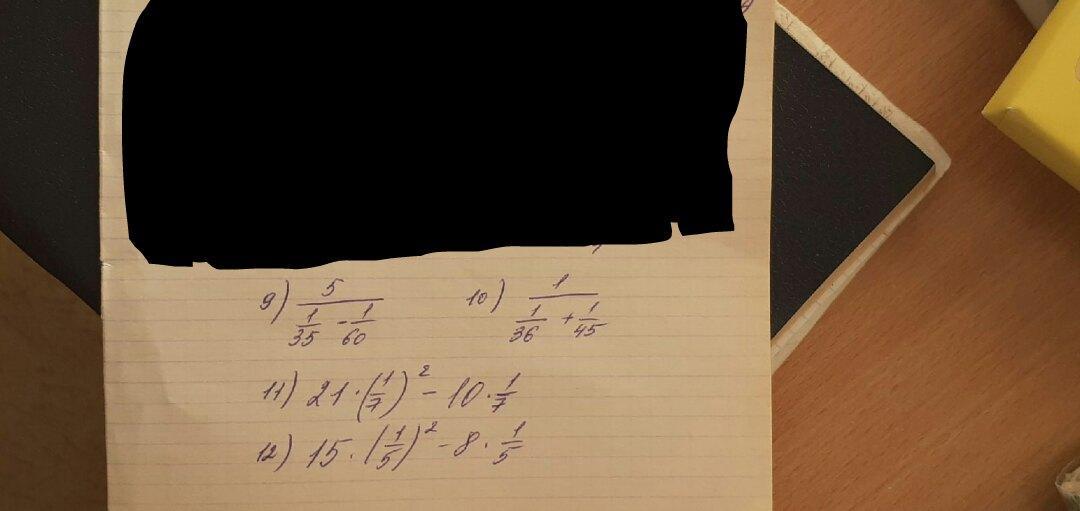 9) 5/(1/35 - 1/60) 10) 1/(1/36 + 1/45)
11) 21·(1/7)² - 10·1/7
12) 15·(1/5)² - 8·1/5